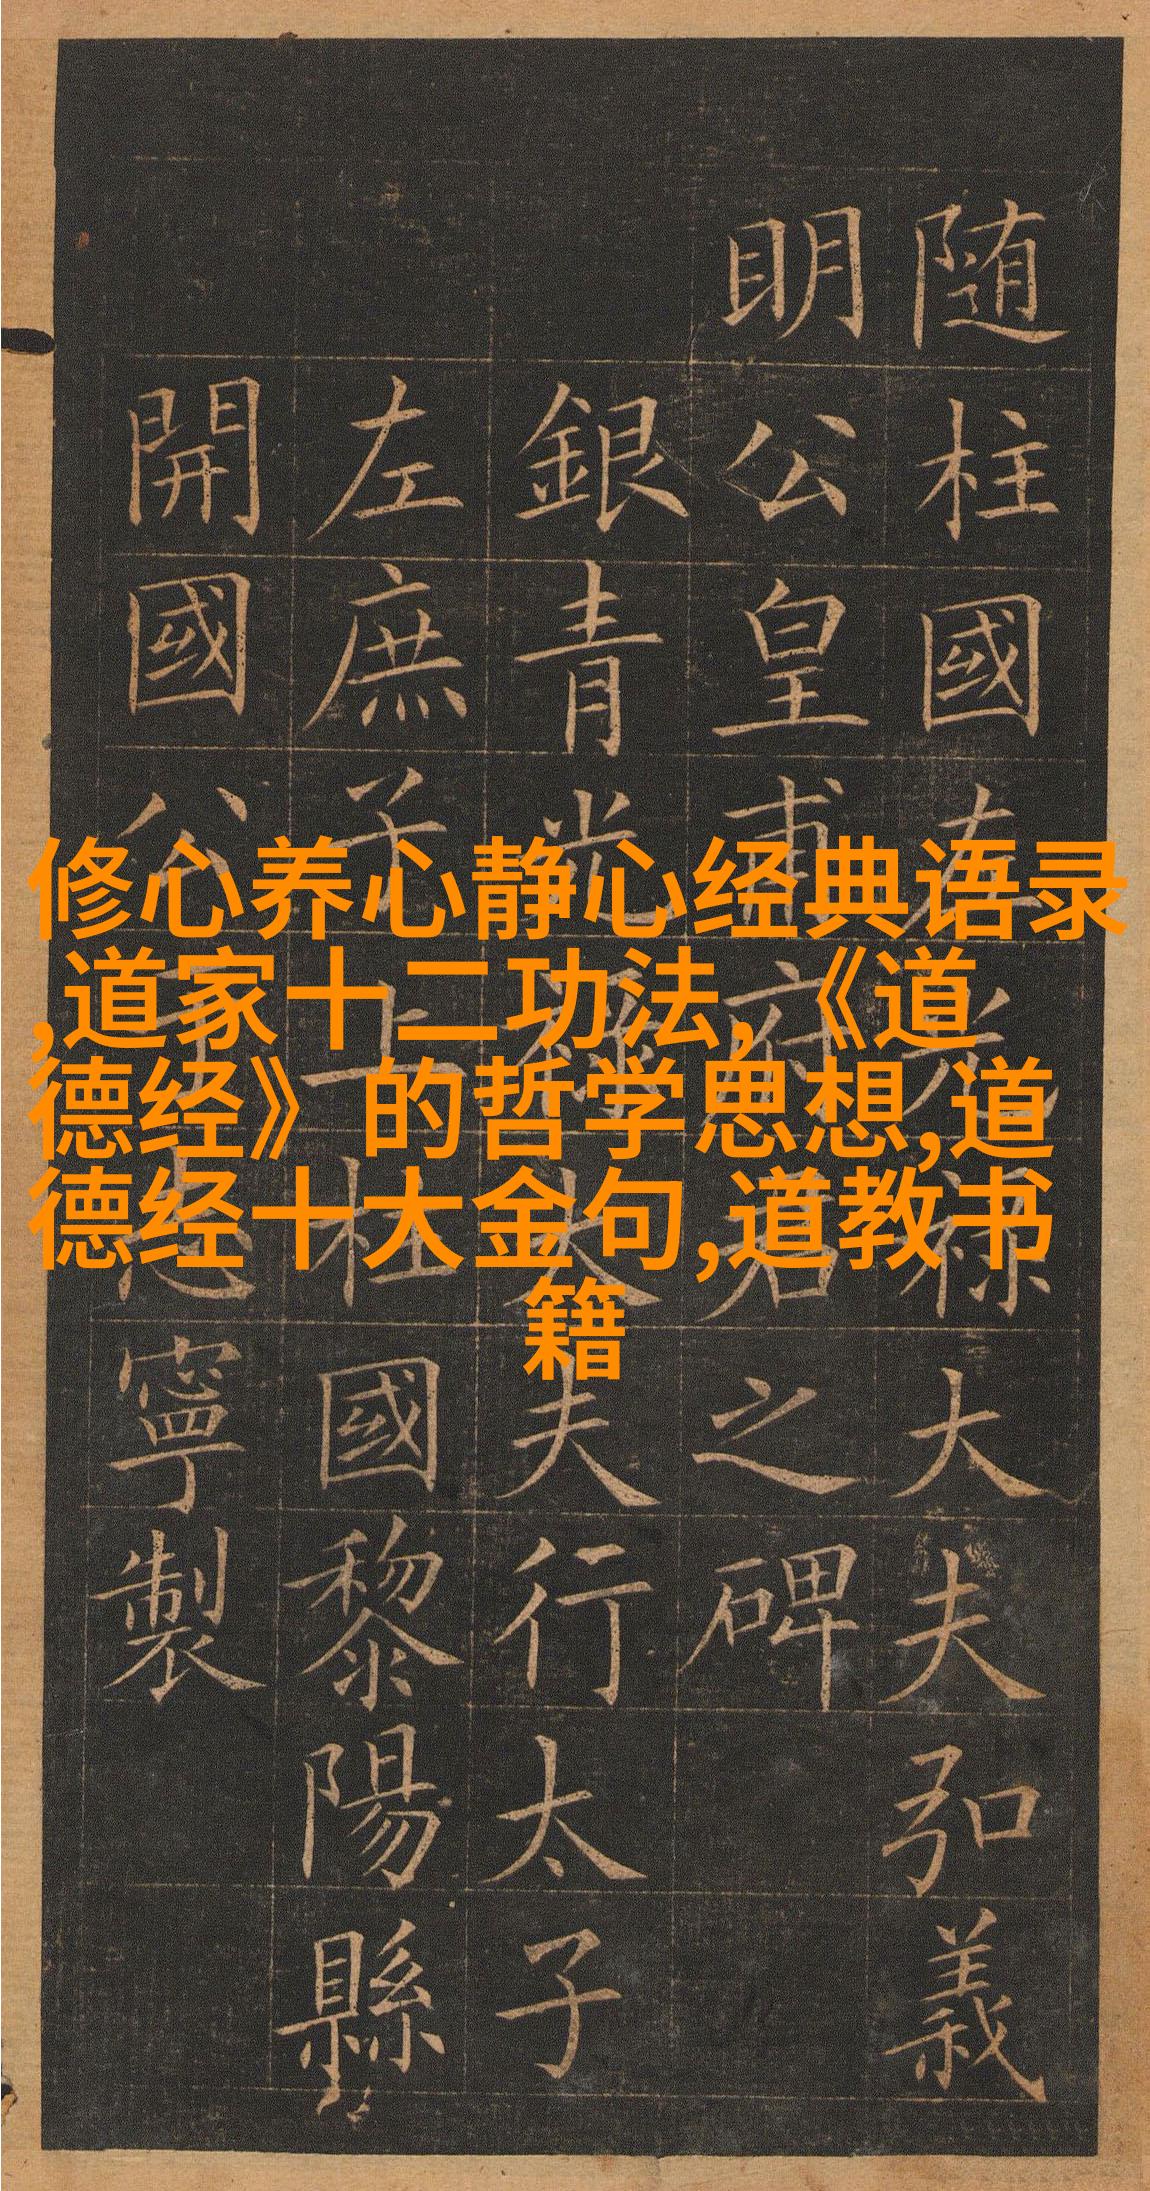 随柱國左光禄大夫弘義
明公皇甫府君之碑
銀青光禄大夫行太子
左庶子上柱國黎陽縣
開國公于志寧製
修心养心静心经典语录
,道家十二功法,《道
德经》的哲学思想,道
德经十大金句,道教书
籍